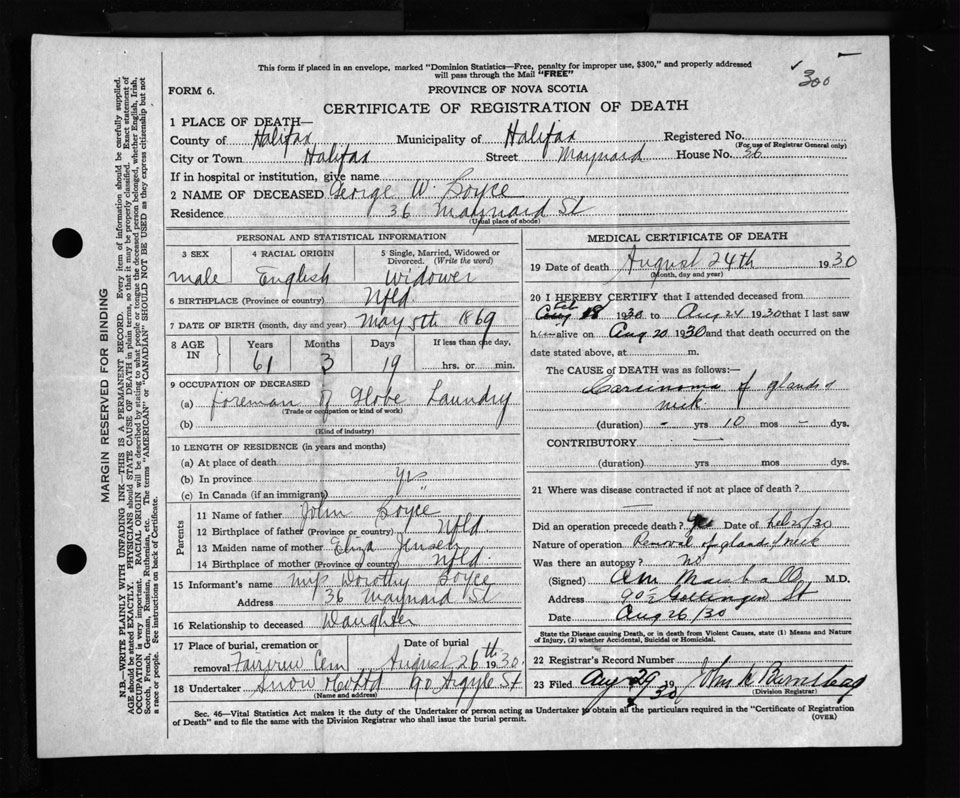 300
This form if placed in an envelope, marked "Dominion Statistics—Free, penalty for improper use, $300," and properly addressed
will pass through the Mail "FREE"
FORM 6.
PROVINCE OF NOVA SCOTIA
CERTIFICATE OF REGISTRATION OF DEATH
1 PLACE OF DEATH—
County of Halifax Municipality of Halifax Registered No.
(For use of Registrar General only)
City or Town Halifax Street Maynard House No. 36
If in hospital or institution, give name
2 NAME OF DECEASED George W. Boyce
Residence 36 Maynard St
(Usual place of abode)
PERSONAL AND STATISTICAL INFORMATION
3 SEX 4 RACIAL ORIGIN 5 Single, Married, Widowed or Divorced. (Write the word)
male English Widower
6 BIRTHPLACE (Province or country) Nfld
7 DATE OF BIRTH (month, day and year) May 5th 1869
8 AGE IN Years Months Days If less than one day,
61 3 19 hrs. or min.
9 OCCUPATION OF DECEASED
(a) foreman of Globe Laundry
(Trade or occupation or kind of work)
(b)
(Kind of industry)
10 LENGTH OF RESIDENCE (in years and months)
(a) At place of death
(b) In province
(c) In Canada (if an immigrant)
Parents
11 Name of father John Boyce
12 Birthplace of father (Province or country) Nfld
13 Maiden name of mother Eliza
14 Birthplace of mother (Province or country) Nfld.
15 Informant's name Miss Dorothy Boyce
Address 36 Maynard St
16 Relationship to deceased Daughter
17 Place of burial, cremation or removal Fairview Cem Date of burial August 26th 1930
18 Undertaker Snow & Co Ltd 90 Argyle St
(Name and address)
MEDICAL CERTIFICATE OF DEATH
19 Date of death August 24th 1930
(Month, day and year)
20 I HEREBY CERTIFY that I attended deceased from
Feb 18 1930 to Aug 24 1930 that I last saw
h alive on Aug 20 1930 and that death occurred on
date stated above, at m.
The CAUSE of DEATH was as follows:—
Carsinoma of glands of
neck
(duration) - yrs 10 mos - dys.
CONTRIBUTORY
(duration) yrs mos dys.
21 Where was disease contracted if not at place of death?
Did an operation precede death? Yes Date of Feb 25/30
Nature of operation Removal of glands of neck
Was there an autopsy? no
(Signed) M.D.
Address Gottingen St
Date Aug 26/30
State the Disease causing Death, or in death from Violent Causes, state (1) Means and Nature
of Injury, (2) whether Accidental, Suicidal or Homicidal.
22 Registrar's Record Number
23 Filed Aug 29 1930 John
(Division Registrar)
Sec. 46—Vital Statistics Act makes it the duty of the Undertaker or person acting as Undertaker to obtain all the particulars required in the "Certificate of Registration
of Death" and to file the same with the Division Registrar who shall issue the burial permit.
(OVER)
MARGIN RESERVED FOR BINDING
N.B.—WRITE PLAINLY WITH UNFADING INK—THIS IS A PERMANENT RECORD. Every item of information should be carefully supplied.
AGE should be stated EXACTLY. PHYSICIANS should STATE CAUSE OF DEATH in plain terms, so that it may be properly classified. Exact statement of
OCCUPATION is very important. RACIAL ORIGIN will be described by stating to what people or tongue the deceased person belonged, whether English, Irish,
Scotch, French, German, Russian, Ruthenian, etc. The terms "AMERICAN" or "CANADIAN" SHOULD NOT BE USED as they express citizenship but not
a race or people. See instructions on back of Certificate.